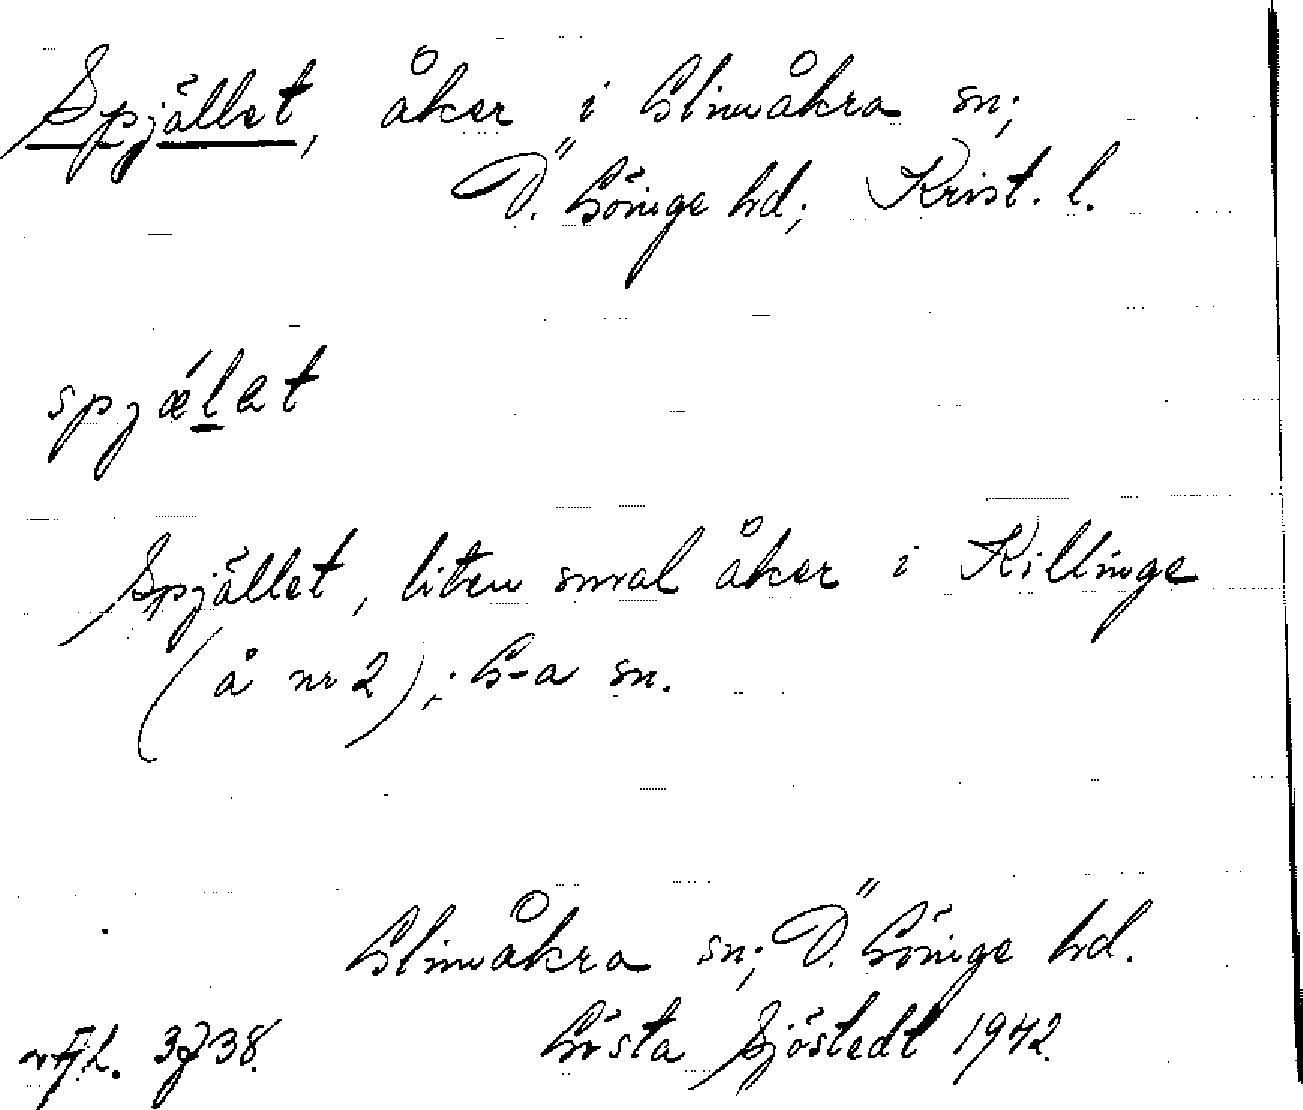 Spjället, åker i Glimåkra sn;
Ö. Göinge hd; Krist. l.
spjǽlat
Spjället, liten smal åker i Killinge
(å nr 2); G-a sn.
Glimåkra sn; Ö. Göinge hd.
Gösta Sjöstedt 1942.